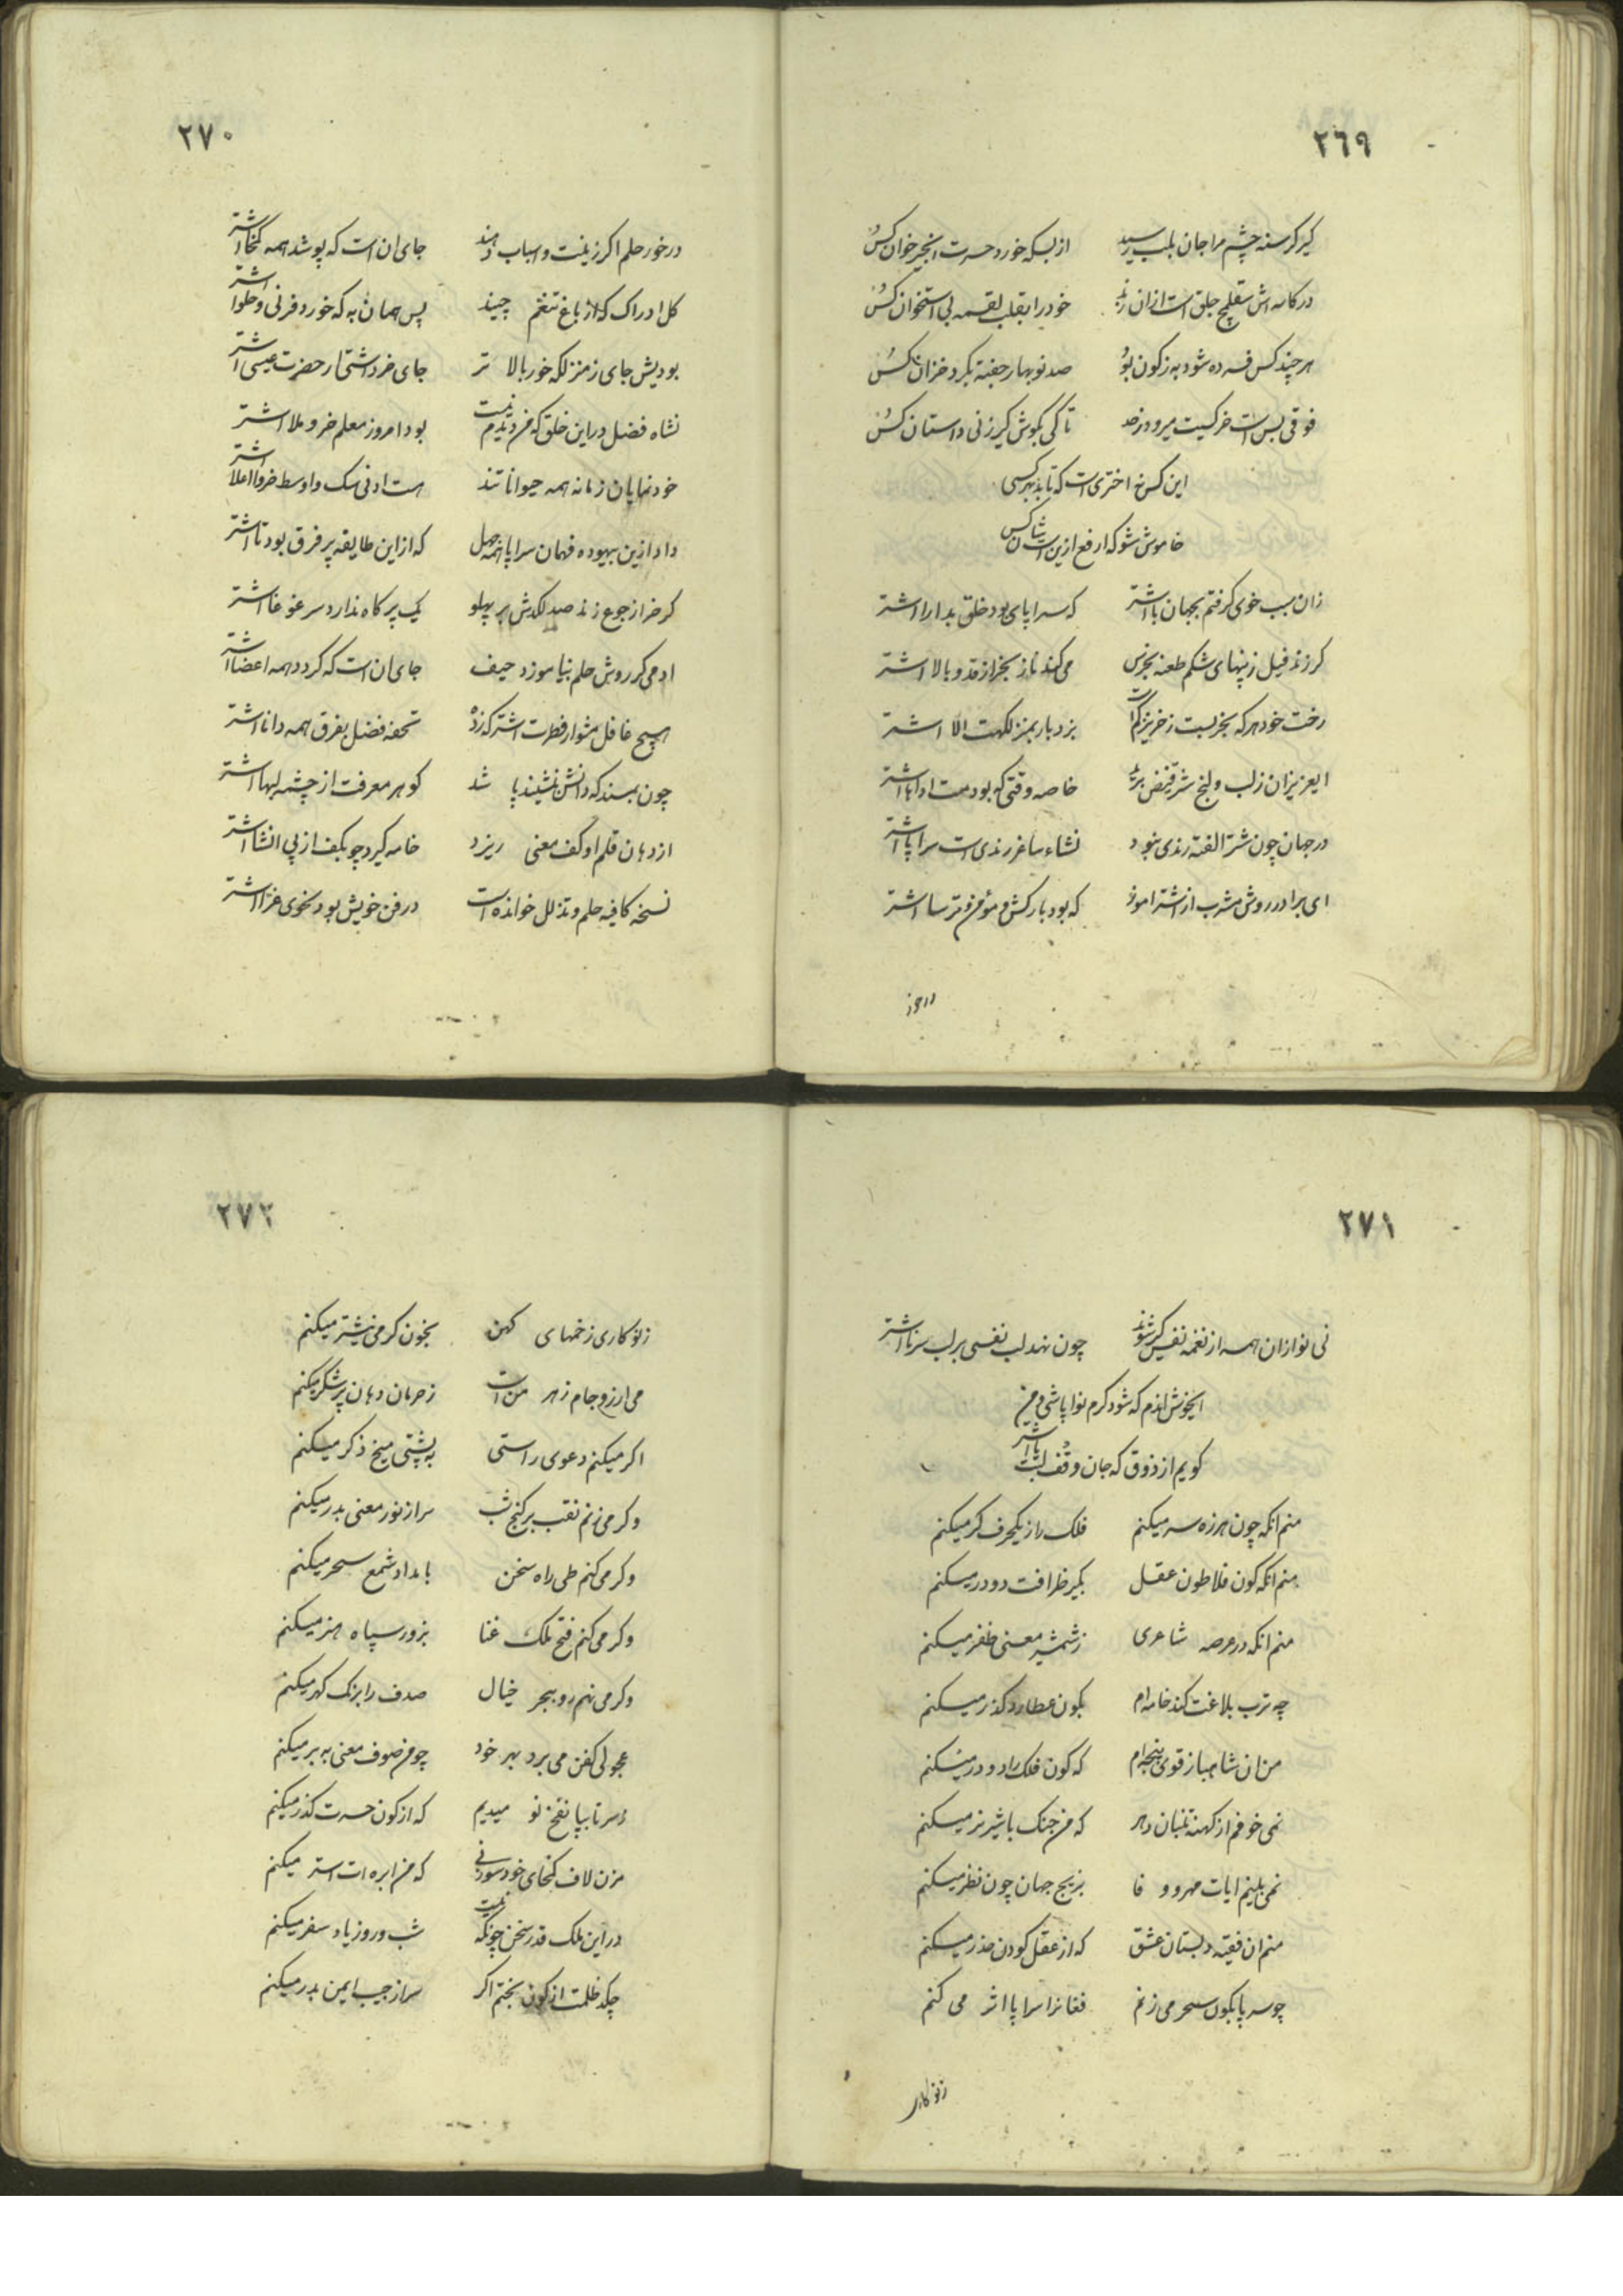 ٢٦٩
کیر کرسنه چشم مرا جان بلب رسید از بسکه خورد حسرت انجیر خوان کس
در کاسه اش حلق است ازان خود را بقلب لقمه بی استخوان کس
هر چند کس فسرده شود به زکون بود صد نوبهار جفته بکرد خزان کس
فوقی بس است خرکیت میرود زحد تا کی بکوش کیر زنی داستان کس
این کس نه اختری است که تابد بهر کسی
خاموش شو که ارفع ازین است شان کس
زان سبب خوی کرفتم بجهان با اشتر که سراپای بود خلق بدارا اشتر
کر زند فیل ز پنهای شکم طعنه بخرس می کند ناز بخر از قد و بالا اشتر
رخت خود هر که بخر بست زخر برد بار بمنزلکهت الا اشتر
ایعزیزان زلب ولنج شتر فیض برید خاصه وقتی که بود مست اداها اشتر
در جهان چون شتر الفته رندی نبود نشاء ساغر رندی است سراپا اشتر
ای برادر روش مشرب از اشتر اموز که بود بارکش مؤمن و ترسا اشتر
در خور
٢٧٠
در خور حلم اکر زینت و اسباب دهند جای ان است که پوشد همه کمخا اشتر
کل ادراک که از باغ تنعم چیند پس همان به که خورد فرنی و حلوا اشتر
بودیش جای ز منزلکه خور بالا تر جای خر داشتی ار حضرت عیسی اشتر
نشاه فضل در این خلق که من دیدم نیست بود امروز معلم خر و ملا اشتر
خود نمایان زمانه همه حیوانا تند هست ادنی سک و اوسط خر و اعلا اشتر
داد ازین بیهوده فهمان سراپا همه جهل که از این طایفه پر فرق بود تا اشتر
کر خر از جوع زند صد لکدش بر پهلو یک پر کاه ندارد سر غوغا اشتر
ادمی کر روش حلم نیاموزد حیف جای ان است که کردد همه اعضا اشتر
هیچ غافل مشو از فطرت اشتر که زده تحفه فضل بفرق همه دانا اشتر
چون بمسند که دانش نشیند پا شد کوهر معرفت از چشمه لبها اشتر
از دهان قلم او کف معنی ریزد خامه کیرد چو بکف از پی انشا اشتر
نسخه کافیه حلم و تذلل خوانده است در فن خویش بود نحوی غرا اشتر
٢٧١
نی نوازان همه از نغمه نفس کیر شوند چون نهد لب نفسی بر لب سرنا اشتر
ایخوش اندم که شود کرم نوا پاشی و من
کویم از ذوق که جان وقف لبت با اشتر
منم انکه چون هرزه سر میکنم فلک را ز یکحرف کر میکنم
منم انکه کون فلاطون عقل بکیر ظرافت دو در میکنم
منم انکه در عرصه شاعری ز شمشیر معنی ظفر میکنم
چه ترب بلاغت کند خامه ام بکون عطارد کذر میکنم
من ان شاهباز قوی پنجه ام که کون فلک را دو در میکنم
نمی خوفم از کهنه تنبان دهر که من جنک با شیر نر میکنم
نمی بلینم ایات مهر و و فا بزیج جهان چون نظر میکنم
منم ان فقیه دبستان عشق که از عقل کودن حذر میکنم
چو سر پا بکون سحر می زنم فغانرا سراپا اثر می کنم
زنو کاری
٢٧٢
زنو کاری زخمهای کهن بخون کرمی نیشتر میکنم
می ارزو جام زهر من است ز حرمان دهان پر شکر میکنم
اکر میکنم دعوی راستی به پشتی میخ ذکر میکنم
وکر می زنم نقب بر کنج شب سر از نور معنی بدر میکنم
وکر می کنم طی راه سخن بامداد شمع سحر میکنم
وکر می کنم فتح ملک غنا بزور سپاه هنر میکنم
وکر می نهم رو ببحر خیال صدف را بزنک کهر میکنم
عجولی کفن می برد بهر خود چو من صوف معنی به بر میکنم
ز سر تا بپا نفخ نو میدیم که از کون حسرت کذر میکنم
مزن لاف کمخای خود سوزنی که من ابره ات استر میکنم
در این ملک قدر سخن چونکه نیست شب و روز یاد سفر میکنم
چکد ظلمت از کون بختم اکر سر از جیب ایمن بدر میکنم